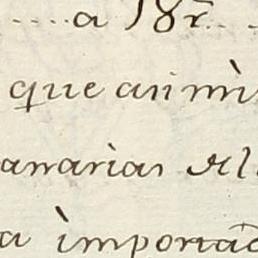 a 18r.
que asi mi
anarias del
a importac